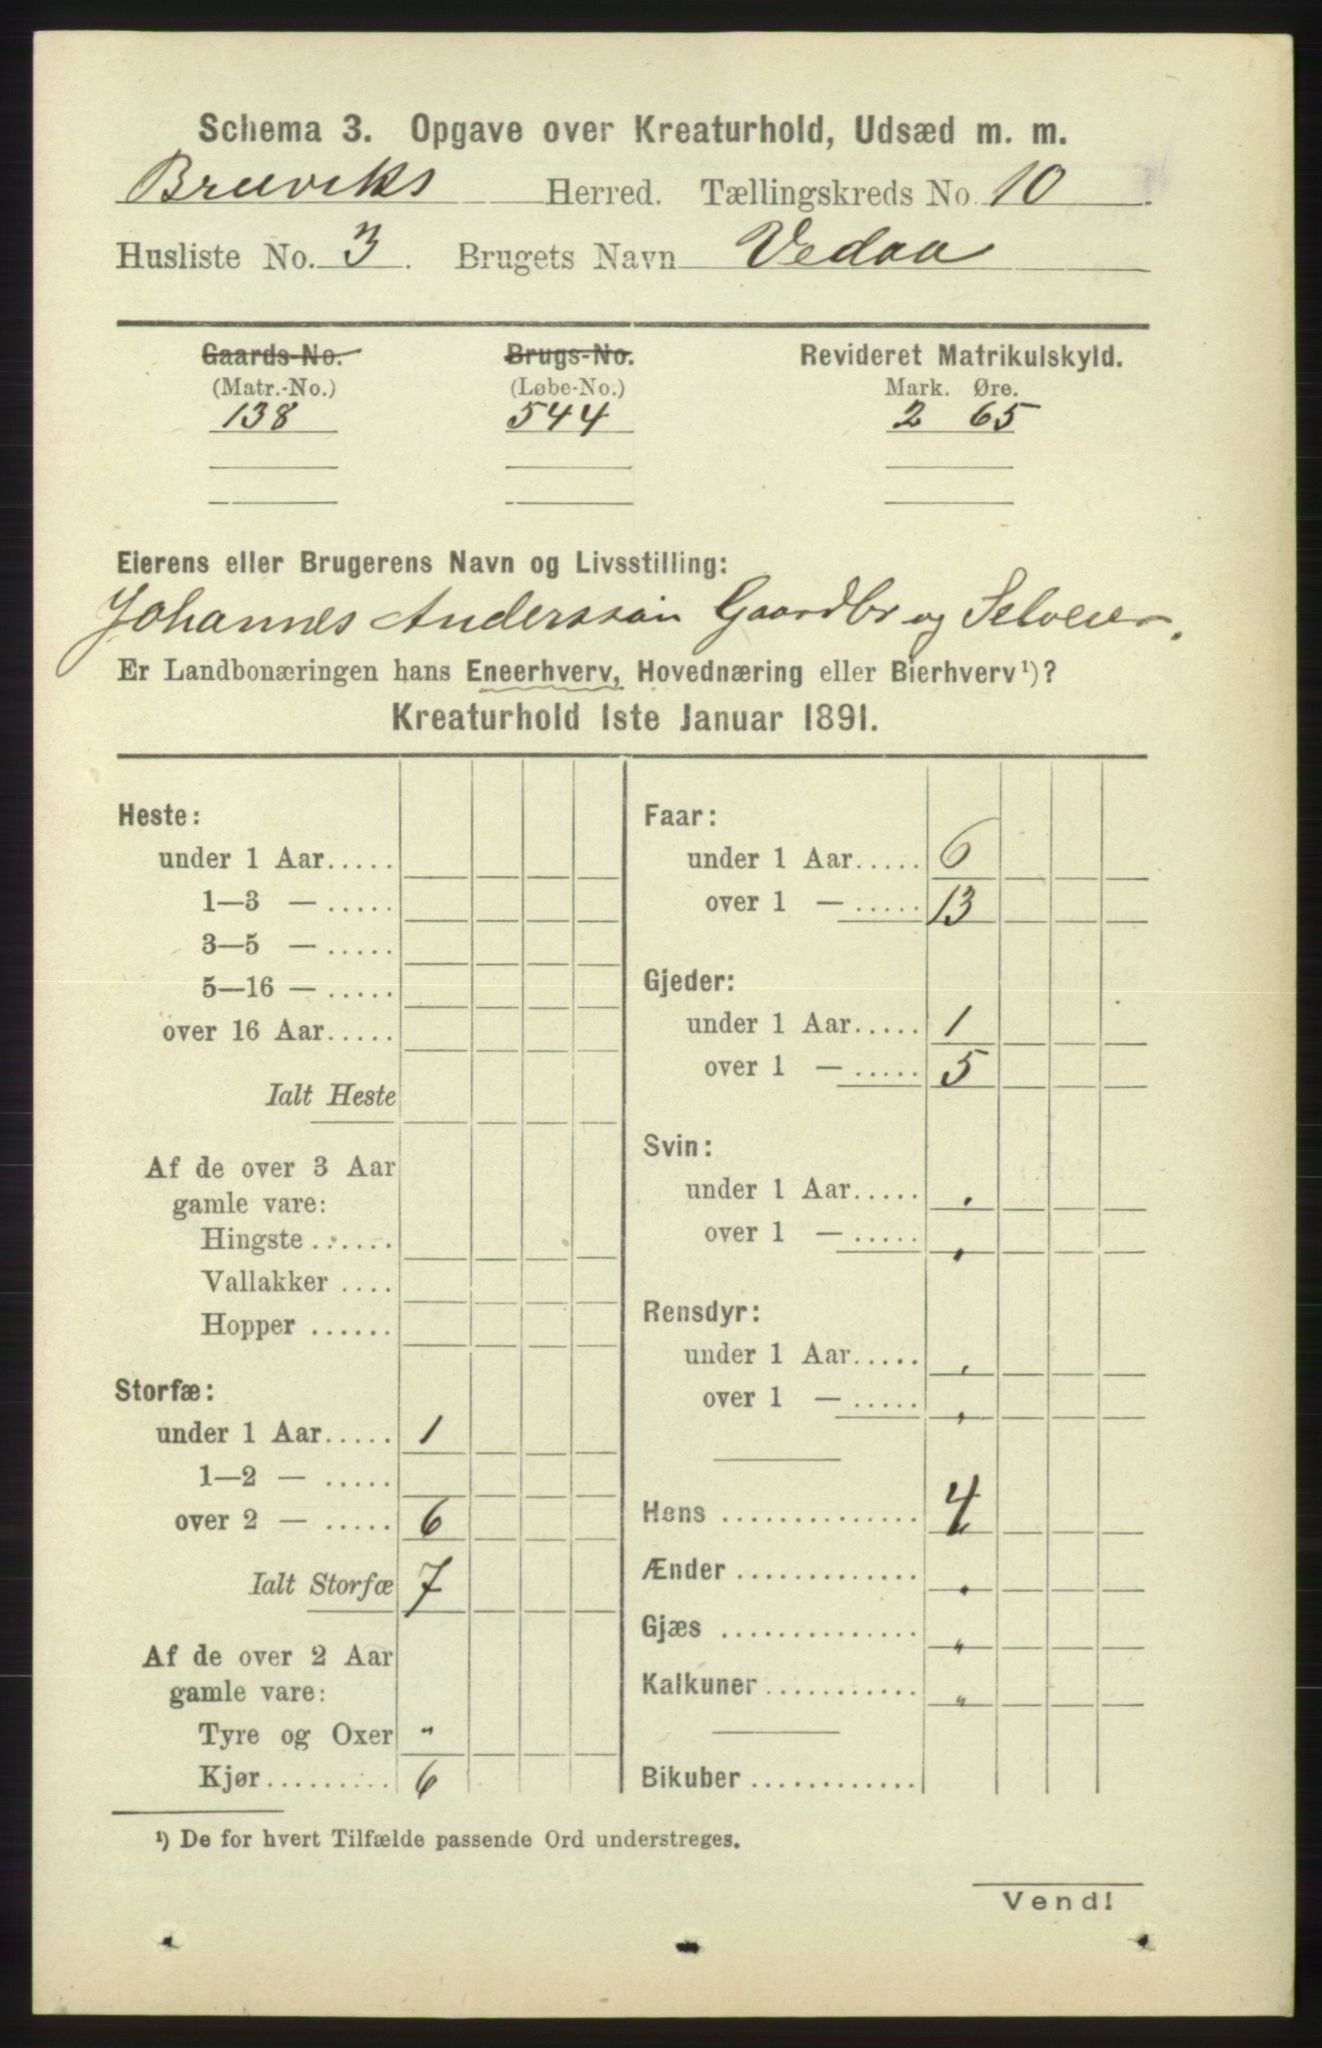 Schema 3. Opgave over Kreaturhold, Udsæd m. m.
Bruviks Herred. Tællingskreds No. 10
Husliste No. 3. Brugets Navn Vedaa
Gaards-No. Brugs-No. Revideret Matrikulskyld.
(Matr.-No.) (Løbe-No.) Mark. Øre.
138 544 2 65
Eierens eller Brugerens Navn og Livsstilling:
Johannes Anderssøn Gaardbr og Selveier.
Er Landbonæringen hans Eneerhverv, Hovednæring eller Bierhverv¹)?
Kreaturhold 1ste Januar 1891.
Heste:
under 1 Aar.....
1—3 — .....
3—5 — .....
5—16 — .....
over 16 Aar.....
Ialt Heste
Af de over 3 Aar
gamle vare:
Hingste ......
Vallakker ....
Hopper ......
Storfæ:
under 1 Aar..... 1
1—2 — .....
over 2 — ..... 6
Ialt Storfæ 7
Af de over 2 Aar
gamle vare:
Tyre og Oxer "
Kjør.......... 6
Faar:
under 1 Aar..... 6
over 1 — ..... 13
Gjeder:
under 1 Aar..... 1
over 1 — ..... 5
Svin:
under 1 Aar..... "
over 1 — ..... "
Rensdyr:
under 1 Aar..... "
over 1 — ..... "
Høns .............. 4
Ænder ............. "
Gjæs .............. "
Kalkuner........... "
Bikuber ............
¹) De for hvert Tilfælde passende Ord understreges.
Vend!